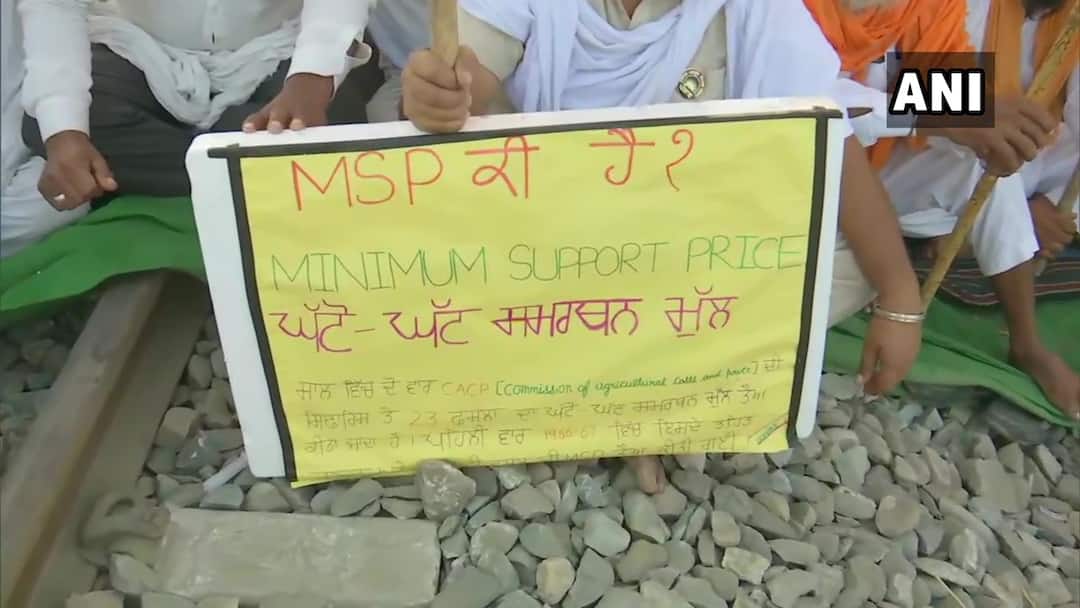 ANI
MSP ਕੀ ਹੈ?
MINIMUM SUPPORT PRICE
ਘੱਟੋ-ਘੱਟ ਸਮਰਥਨ ਮੁੱਲ
ਸਾਲ ਵਿੱਚ ਦੋ ਵਾਰ CACP [Commission of agricultural costs and price] ਦੀ
ਸਿਫਾਰਿਸ਼ ਤੇ 23 ਫਸਲਾਂ ਦਾ ਘੱਟੋ ਘੱਟ ਸਮਰਥਨ ਮੁੱਲ ਤੈਅ
ਕੀਤਾ ਜਾਂਦਾ ਹੈ। ਪਹਿਲੀ ਵਾਰ 1966-67 ਵਿੱਚ ਇਸਦੇ ਤਹਿਤ
MSP ਕੀਤੀ ਗਈ